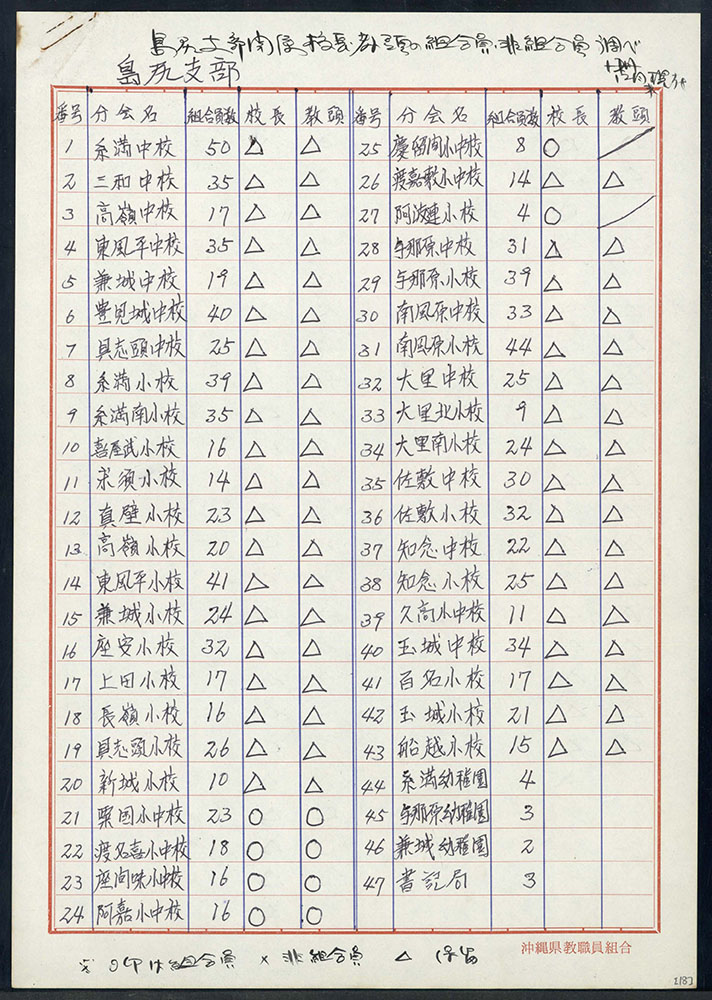 島尻支部関係校長教頭の組合員、非組合員調べ
島尻支部
番号 分会名 組合員数 校長 教頭 番号 分会名 組合員数 校長 教頭
1 糸満中校 50 △ △ 25 慶留間小中校 8 ○ ／
2 三和中校 35 △ △ 26 渡嘉敷小中校 14 △ △
3 高嶺中校 17 △ △ 27 阿波連小校 4 ○ ／
4 東風平中校 35 △ △ 28 与那原中校 31 △ △
5 兼城中校 19 △ △ 29 与那原小校 39 △ △
6 豊見城中校 40 △ △ 30 南風原中校 33 △ △
7 具志頭中校 25 △ △ 31 南風原小校 44 △ △
8 糸満小校 39 △ △ 32 大里中校 25 △ △
9 糸満南小校 35 △ △ 33 大里北小校 9 △ △
10 喜屋武小校 16 △ △ 34 大里南小校 24 △ △
11 米須小校 14 △ △ 35 佐敷中校 30 △ △
12 真壁小校 23 △ △ 36 佐敷小校 32 △ △
13 高嶺小校 20 △ △ 37 知念中校 22 △ △
14 東風平小校 41 △ △ 38 知念小校 25 △ △
15 兼城小校 24 △ △ 39 久高小中校 11 △ △
16 座安小校 32 △ △ 40 玉城中校 34 △ △
17 上田小校 17 △ △ 41 百名小校 17 △ △
18 長嶺小校 16 △ △ 42 玉城小校 21 △ △
19 具志頭小校 26 △ △ 43 船越小校 15 △ △
20 新城小校 10 △ △ 44 糸満幼稚園 4
21 粟国小中校 23 ○ ○ 45 与那原幼稚園 3
22 渡名喜小中校 18 ○ ○ 46 兼城幼稚園 2
23 座間味小中校 16 ○ ○ 47 書記局 3
24 阿嘉小中校 16 ○ ○
○印は組合員 × 非組合員 △ 保留
沖縄県教職員組合
[18]